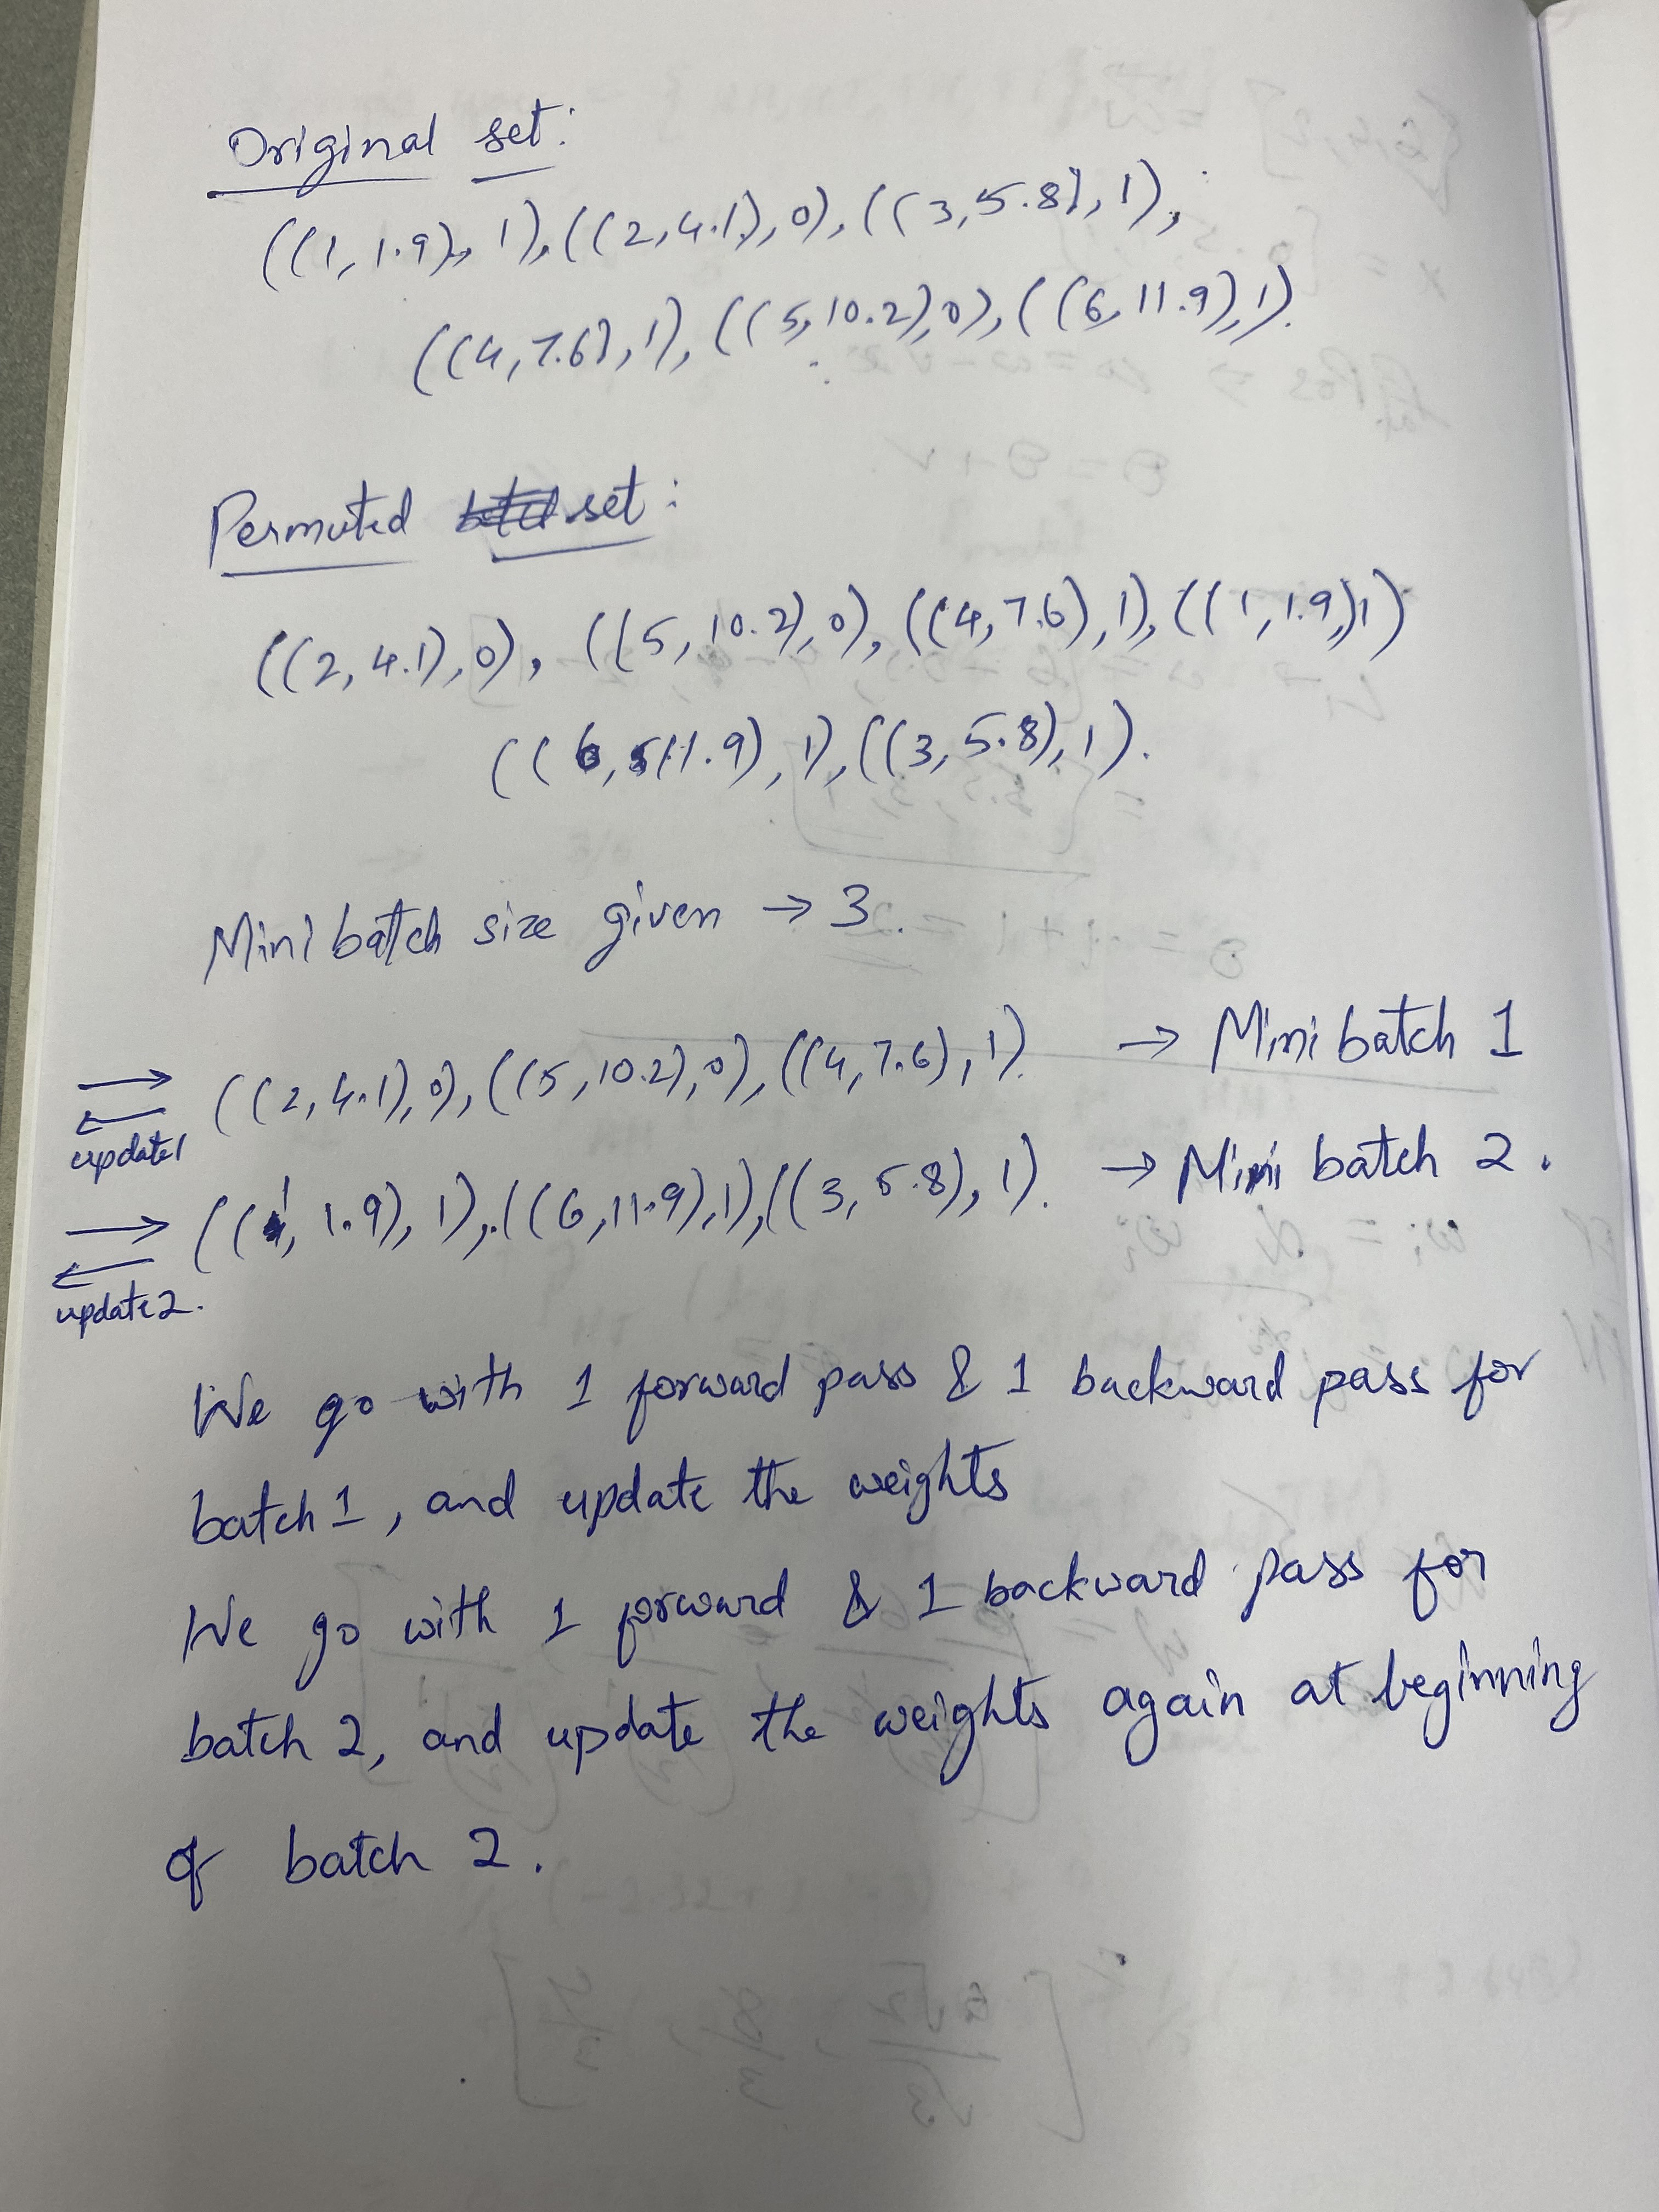 Original set:
((1, 1.9), 1), ((2, 4.1), 0), ((3, 5.8), 1),
((4, 7.6), 1), ((5, 10.2), 0), ((6, 11.9), 1).
Permuted set:
((2, 4.1), 0), ((5, 10.2), 0), ((4, 7.6), 1), ((1, 1.9), 1)
((6, 11.9), 1), ((3, 5.8), 1).
Mini batch size given → 3.
((2, 4.1), 0), ((5, 10.2), 0), ((4, 7.6), 1). → Mini batch 1
update1
((1, 1.9), 1), ((6, 11.9), 1), ((3, 5.8), 1). → Mini batch 2.
update2.
We go with 1 forward pass & 1 backward pass for
batch 1, and update the weights
We go with 1 forward & 1 backward pass for
batch 2, and update the weights again at beginning
of batch 2.